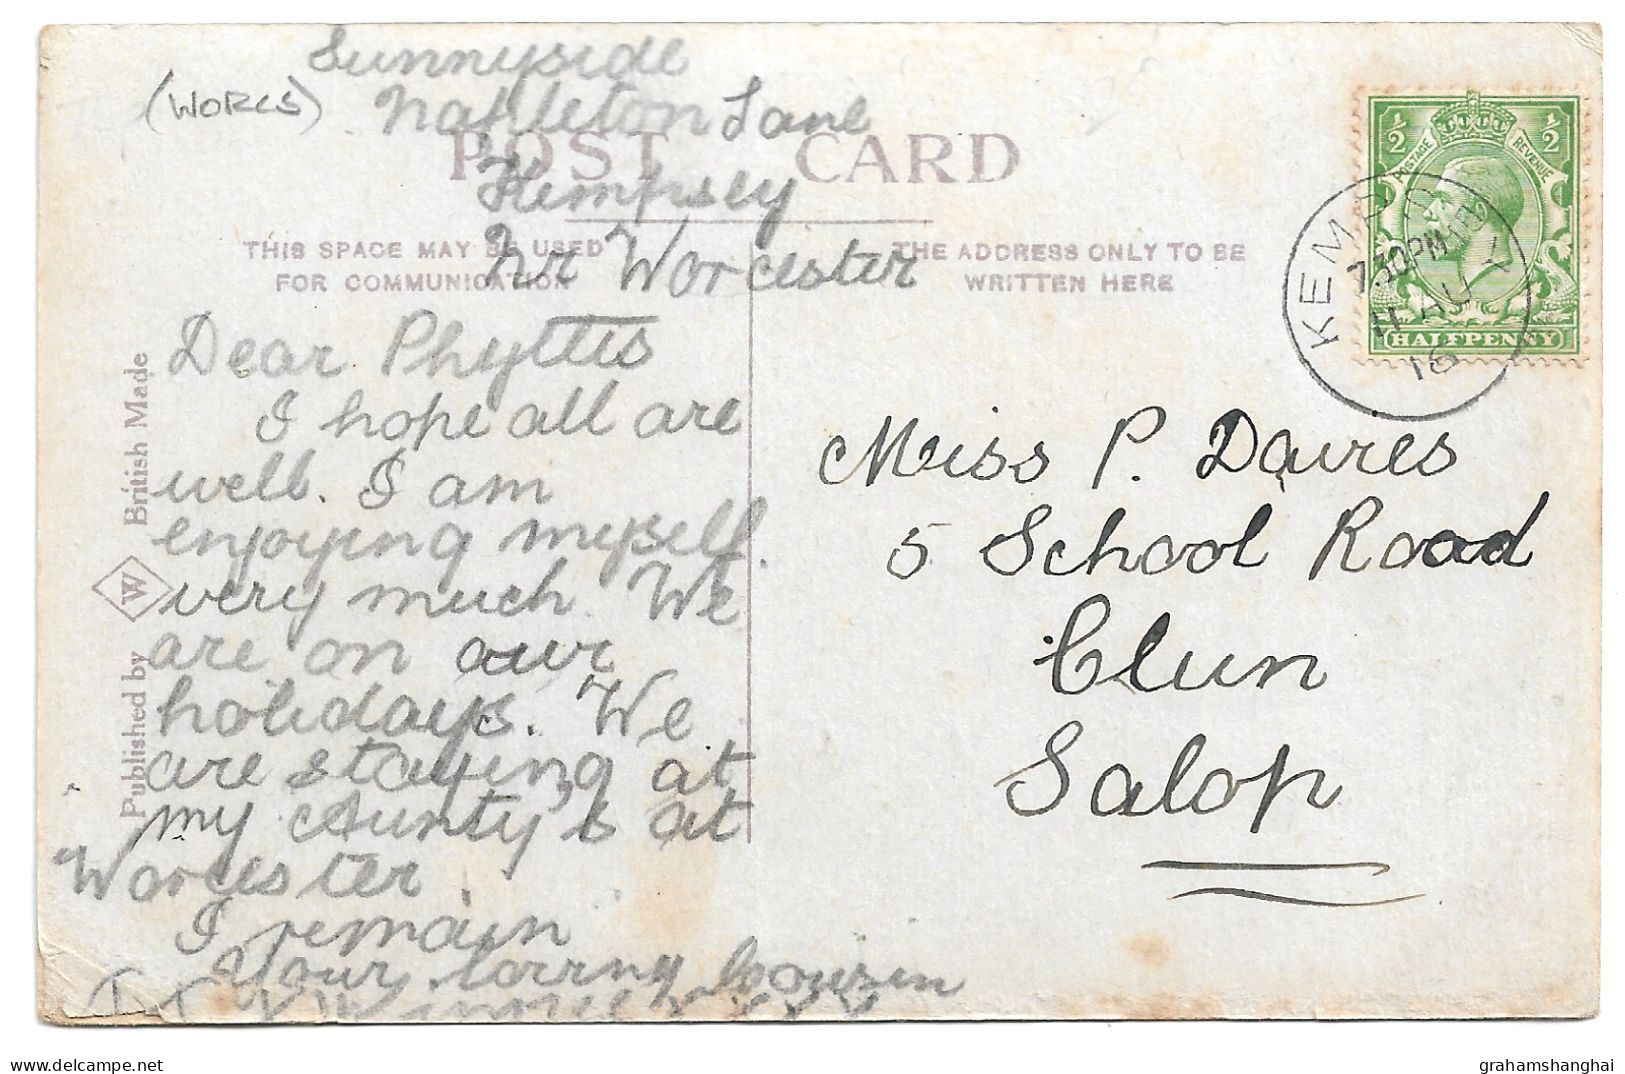 Sunnyside
(WORCS) Nattleton Lane
Kempsey
Nr Worcester
POST CARD
THIS SPACE MAY BE USED
FOR COMMUNICATION
THE ADDRESS ONLY TO BE
WRITTEN HERE
Published by W British Made
Dear Phyllis
I hope all are
well. I am
enjoying myself
very much. We
are on our
holidays. We
are staying at
my Aunty's at
Worcester.
I remain
Your loving Cousin
Winnie
½ ½
POSTAGE REVENUE
HALFPENNY
7.30PM
11 AU
16
Miss P. Davies
5 School Road
Clun
Salop
delcampe.net
grahamshanghai